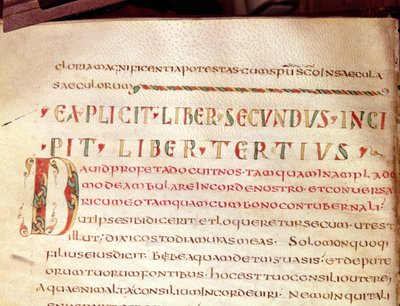 GLORIA MAGNIFICENTIA POTESTAS · CUM SPU SCO IN SAECULA
SAECULORUM
EXPLICIT · LIBER · SECUNDUS · INCI
PIT · LIBER · TERTIUS
DAUID PROPETA DOCUIT NOS · TAMQUAM IN AMPLA DO
MO DEAMBULARE IN CORDE NOSTRO · ET CONUERSA
RI CUM EO TAMQUAM CUM BONO CONTUBERNALI ·
UT IPSE SIBI DICERIT · ET LOQUERETUR SECUM · UT EST
ILLUT; DIXI CUSTODIAM UIAS MEAS · SOLOMON QUOQ
FILIUS EIUS DICIT · BIBE AQUAM DE TUIS UASIS · ET DE PUTE
ORUM TUORUM FONTIBUS · HOC EST TUO CONSILIO UTERE,
AQUA ENIM ALTA CONSILIUM IN CORDE UIRI · NEMO INQUIT ALI